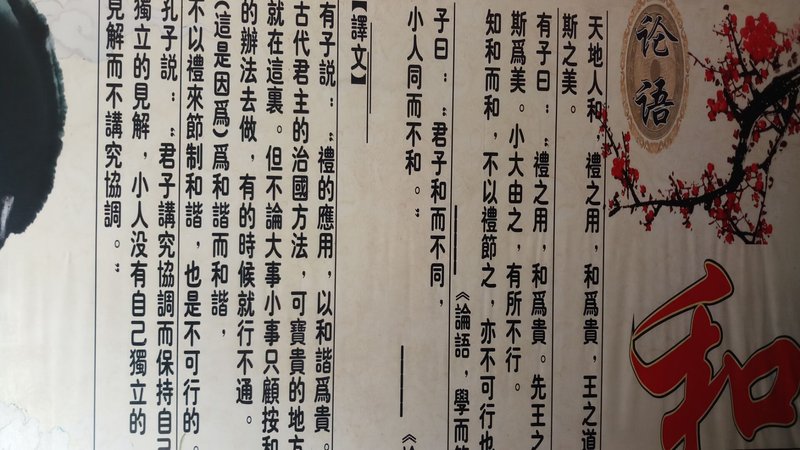 和
论语
天地人和 禮之用，和爲貴，王之道
斯之美。
有子曰：“禮之用，和爲貴。先王之
斯爲美。小大由之，有所不行。
知和而和，不以禮節之，亦不可行也
——《論語，學而
子曰：“君子和而不同，
小人同而不和。”
——《
【譯文】
有子說：“禮的應用，以和諧爲貴。
古代君主的治國方法，可寶貴的地方
就在這裏。但不論大事小事只顧按和
的辦法去做，有的時候就行不通。
(這是因爲)爲和諧而和諧，
不以禮來節制和諧，也是不可行的。
孔子說：“君子講究協調而保持自己
獨立的見解，小人没有自己獨立的
見解而不講究協調。”